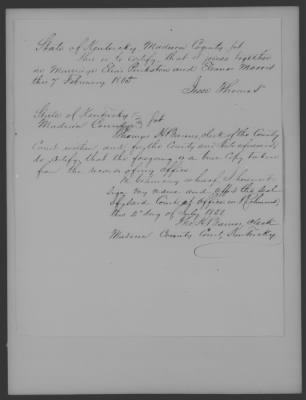 State of Kentucky Madison County Sct
This is to certify, that I joined together
in Marriage and Eleanor Morris
this 7 February
State of Kentucky
Madison County Sct
Thomas H Barnes, clerk of the County
Court within and for the County and State aforesaid
do certify that the foregoing is a true Copy taken
from the records of my office
In testimony whereof I hereunto
sign my name and affix the Seal
of said Court at office in Richmond
this day of July
Tho. H Barnes, Clerk
Madison County Court, Kentucky